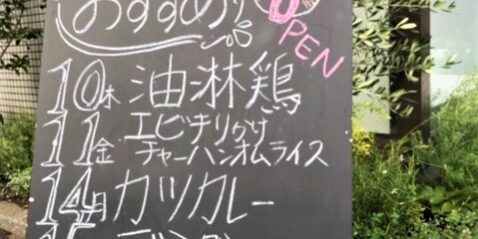 おすすめ
OPEN
10木 油淋鶏
11金 エビチリがけ
チャーハンオムライス
14月 カツカレー
15